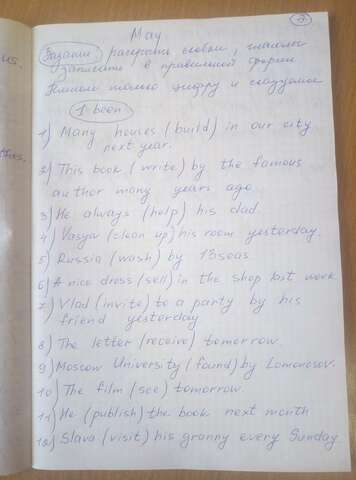 us.
2
May
Задание раскрыть скобки, глаголы
записать в правильной форме
только цифру и сказуемое
1. been
1) Many houses (build) in our city
next year.
2) This book (write) by the famous
author many years ago.
3) He always (help) his dad.
4) Vasyiv (clean up) his room yesterday.
5) Russia (wash) by 13 seas
6) A nice dress (sell) in the shop last week
7) Vlad (invite) to a party by his
friend yesterday
8) The letter (receive) tomorrow.
9) Moscow University (found) by Lomonosov.
10) The film (see) tomorrow
11) He (publish) the book next month
12) Slava (visit) his granny every Sunday